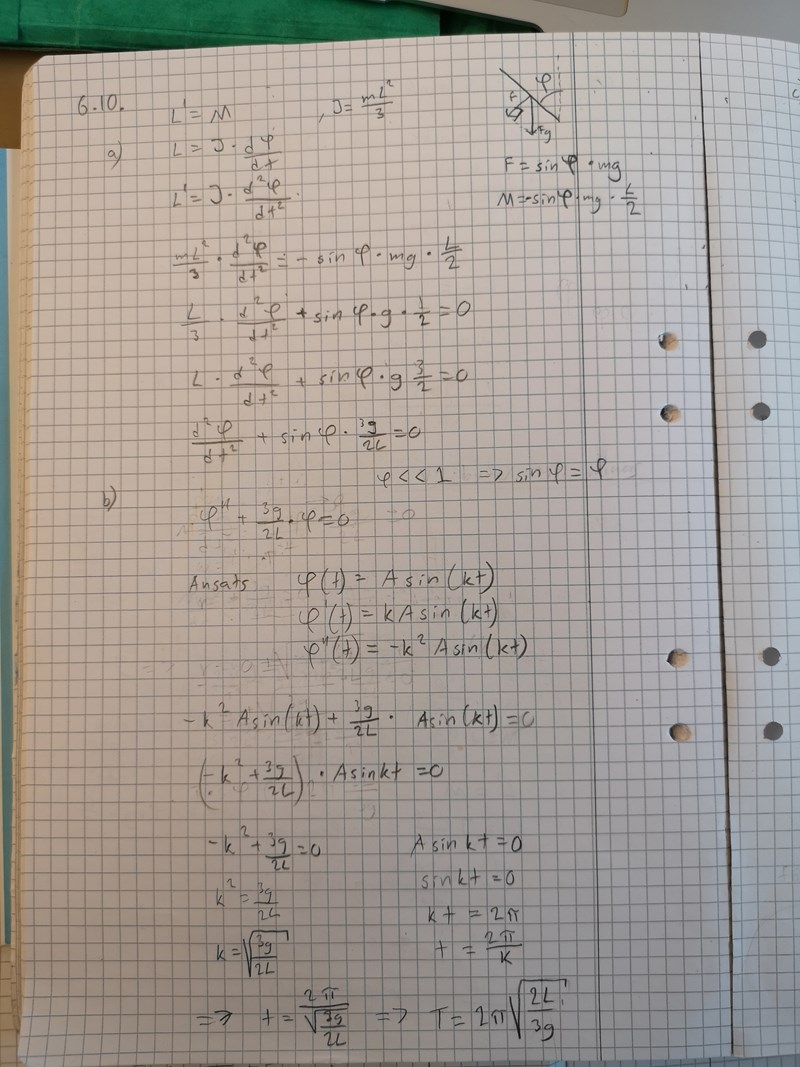 6.10.
L' = M , J = mL²/3
φ
F
Fg
a) L = J · dφ/dt
F = sinφ · mg
L' = J · d²φ/dt²
M = -sinφ · mg · L/2
mL²/3 · d²φ/dt² = - sinφ · mg · L/2
L/3 · d²φ/dt² + sinφ · g · 1/2 = 0
L · d²φ/dt² + sinφ · g 3/2 = 0
d²φ/dt² + sinφ · 3g/2L = 0
φ << 1 => sinφ = φ
b) φ'' + 3g/2L · φ = 0
Ansats φ(t) = A sin(kt)
φ'(t) = kA sin(kt)
φ''(t) = -k² A sin(kt)
-k² A sin(kt) + 3g/2L · A sin(kt) = 0
(-k² + 3g/2L) · A sin kt = 0
-k² + 3g/2L = 0 A sin kt = 0
k² = 3g/2L sin kt = 0
k = √(3g/2L) kt = 2π
t = 2π/k
=> t = 2π/√(3g/2L) => T = 2π√(2L/3g)